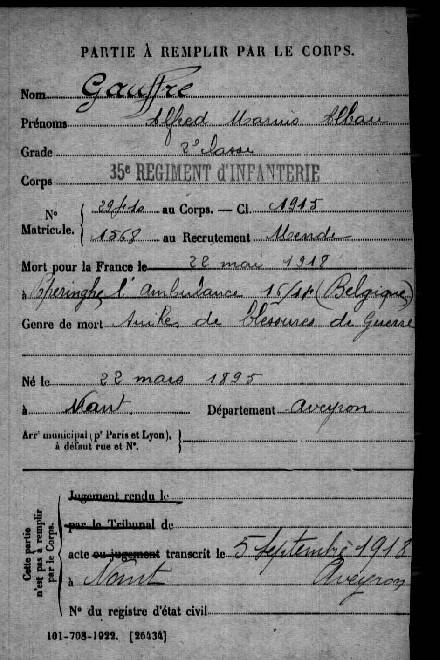 PARTIE À REMPLIR PAR LE CORPS.
Nom Gauffre
Prénoms Alfred Marius Alban
Grade 2e classe
Corps 35e REGIMENT d'INFANTERIE
N° Matricule. au Corps. — Cl. 1915
1568 au Recrutement Mende
Mort pour la France le 22 mai 1918
à l'ambulance 16/18 (Belgique)
Genre de mort Suites de blessures de Guerre
Né le 22 mars 1895
à Nant Département Aveyron
Arr' municipal (p' Paris et Lyon),
à défaut rue et N°.
Cette partie n'est pas à remplir par le Corps.
Jugement rendu le
par le Tribunal de
acte ou jugement transcrit le 5 Septembre 1918
à Nant Aveyron
N° du registre d'état civil
101-708-1922. [26434]